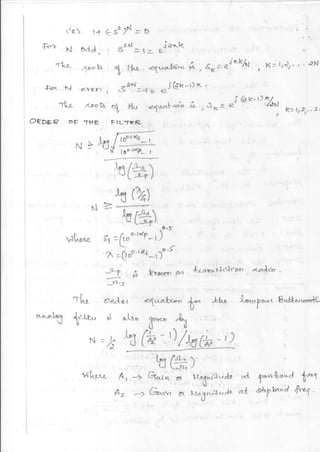 i.e., 1+(-s²)^N = 0
For N odd, s^2N = 1 = e^j2πk
The roots of the equation is, S_k = e^jπk/N, K=1,2,... 2N
For N even, s^2N = -1 = e^j(2k-1)π.
The roots of the equation is, S_k = e^j(2k-1)π/2N, k=1,2,..2
ORDER OF THE FILTER
N ≥ log √(10^0.1αs - 1 / 10^0.1αp - 1)
log (Ωs/Ωp)
N ≥ log (λ/ε) / log (Ωs/Ωp)
Where ε = (10^0.1αp - 1)^0.5
λ = (10^0.1αs - 1)^0.5
Ωp/Ωs is known as transition ratio.
The order equation for the lowpass Butterworth
analog filter is also given by
N = 1/2 log (1/A2² - 1) / log (1/A1² - 1)
log (Ω2/Ω1)
Where A1 → Gain or Magnitude at passband freq
A2 → Gain or Magnitude at stopband freq.